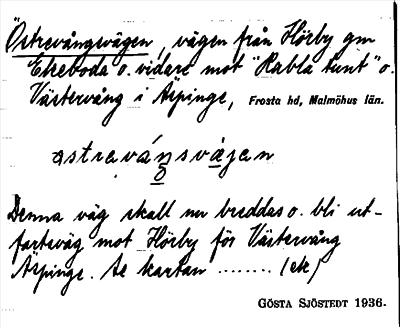 "Östrevångsvägen, vägen från Hörby gm
Ekeboda o. vidare mot "Rabla tunt" o.
Västervång i Äspinge, Frosta hd, Malmöhus län.
astravánsvägen
Denna väg skall nu breddas o. bli ut-
fartsväg mot Hörby för Västervång
Äspinge. Se kartan ........ (ek)
GÖSTA SJÖSTEDT 1936.